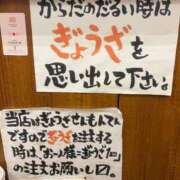 からだのだるい時は
ぎょうざを
思い出して下さい。
当店はぎょうざせんもんてん
ですのでぎょうざを注文する
時は、「お一人様=ぎょうざ1皿」
の注文お願いし〼。